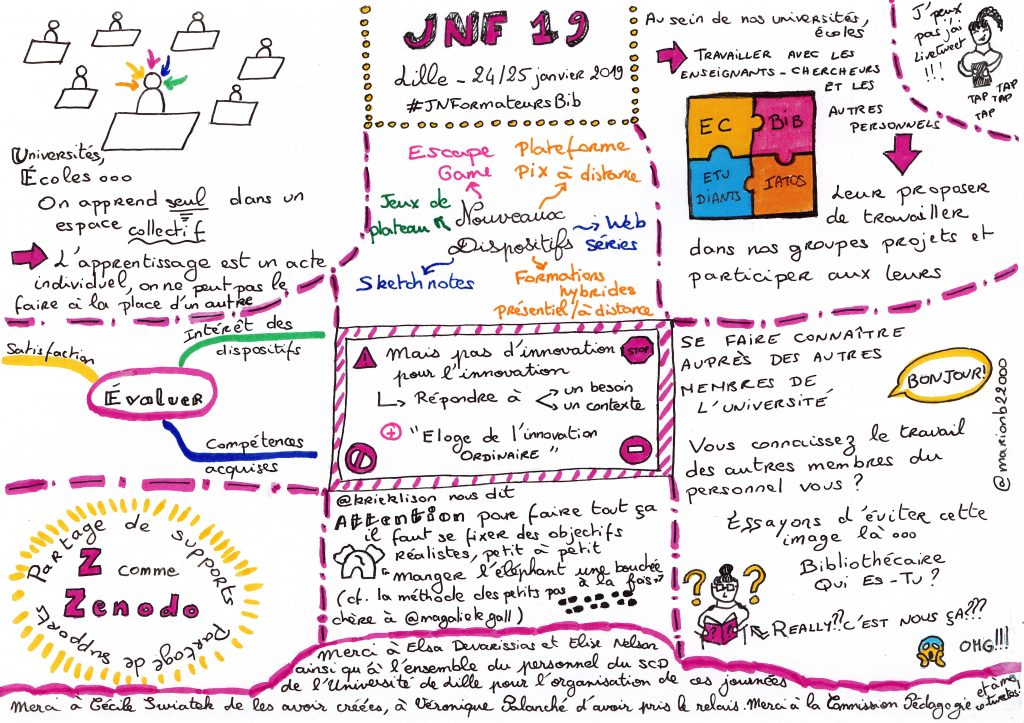 JNF 19
Lille - 24/25 janvier 2019
#JNFormateursBib
Universités,
Écoles ooo
On apprend seul dans un
espace collectif
L'apprentissage est un acte
individuel, on ne peut pas le
faire à la place d'un autre
Escape
Game
Plateforme
Pix à distance
Jeux de
plateau
Nouveaux
Dispositifs
Web
séries
Sketchnotes
Formations
hybrides
présentiel/à distance
Au sein de nos universités,
écoles
Travailler avec les
enseignants-chercheurs
et les
autres
personnels
EC
BiB
ETU
DIANTS
IATOS
Leur proposer
de travailler
dans nos groupes projets et
participer aux leurs
J'peux
pas j'ai
livetweet
!!!
TAP TAP
TAP TAP
Satisfaction
Intérêt des
dispositifs
Évaluer
Compétences
acquises
Mais pas d'innovation
pour l'innovation
STOP
Répondre à
un besoin
un contexte
+ "Eloge de l'innovation
ordinaire"
SE FAIRE CONNAÎTRE
AUPRÈS DES AUTRES
MEMBRES DE
L'UNIVERSITÉ
BONJOUR!
@marionb22000
Vous connaissez le travail
des autres membres du
personnel vous ?
Essayons d'éviter cette
image là ooo
Bibliothécaire
Qui Es-Tu ?
? ?
REALLY?! C'EST NOUS ÇA???
OMG!!!
Partage de supports
Z comme
Zenodo
Partage de supports
@krieklison nous dit
Attention pour faire tout ça
il faut se fixer des objectifs
réalistes, petit à petit
manger l'éléphant une bouchée
à la fois
(cf. la méthode des petits pas
chère à @magalielegall)
Merci à Elsa et Elise Nelson
ainsi qu'à l'ensemble du personnel du SCD
de l'Université de Lille pour l'organisation de ces journées
Merci à Cécile Swiatek de les avoir créées, à Véronique Palanché d'avoir pris le relais. Merci à la Commission Pédagogie